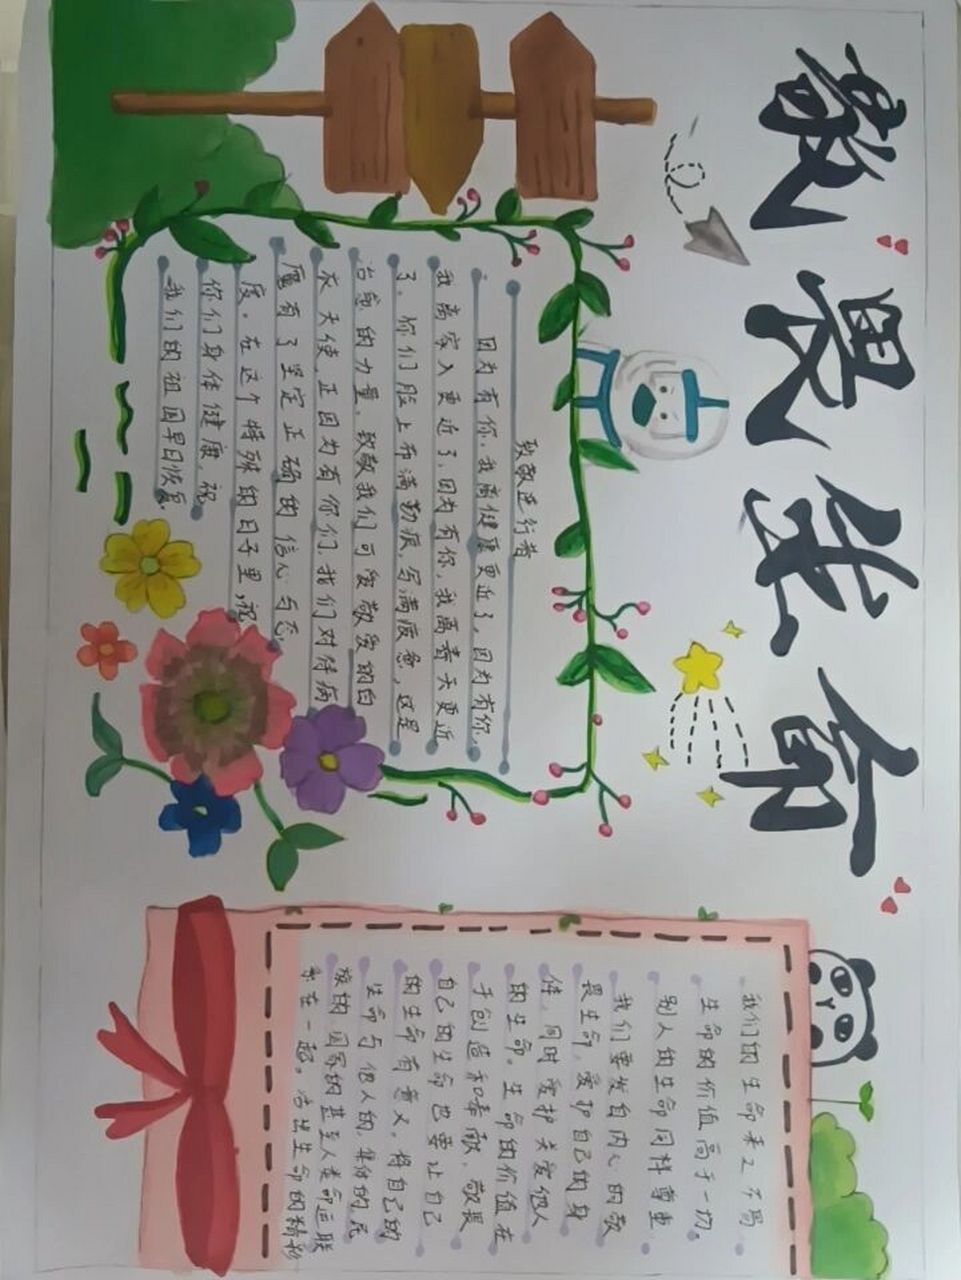 敬畏生命
致敬逆行者
因为有你,我离健康更近了,因为有你
我离家人更近了,因为有你,我离春天更近
了,你们脸上布满勒痕,写满疲惫,这是
治愈的力量,致敬我们可爱敬爱的白
衣天使,正因为有你们,我们对待病
魔有了坚定正确的信心与态
度,在这个特殊的日子里,祝
你们身体健康,祝
我们的祖国早日恢复
我们的生命来之不易
生命的价值高于一切。
别人的生命同样尊重
我们要发自内心的敬
畏生命,爱护自己的身
体,同时爱护关爱他人
的生命。生命的价值在
于创造和奉献,敬畏
自己的生命也要让自己
的生命有意义,将自己的
生命与他人的,集体的,民
族的国家的甚至人类命运联
系在一起。活出生命的精彩